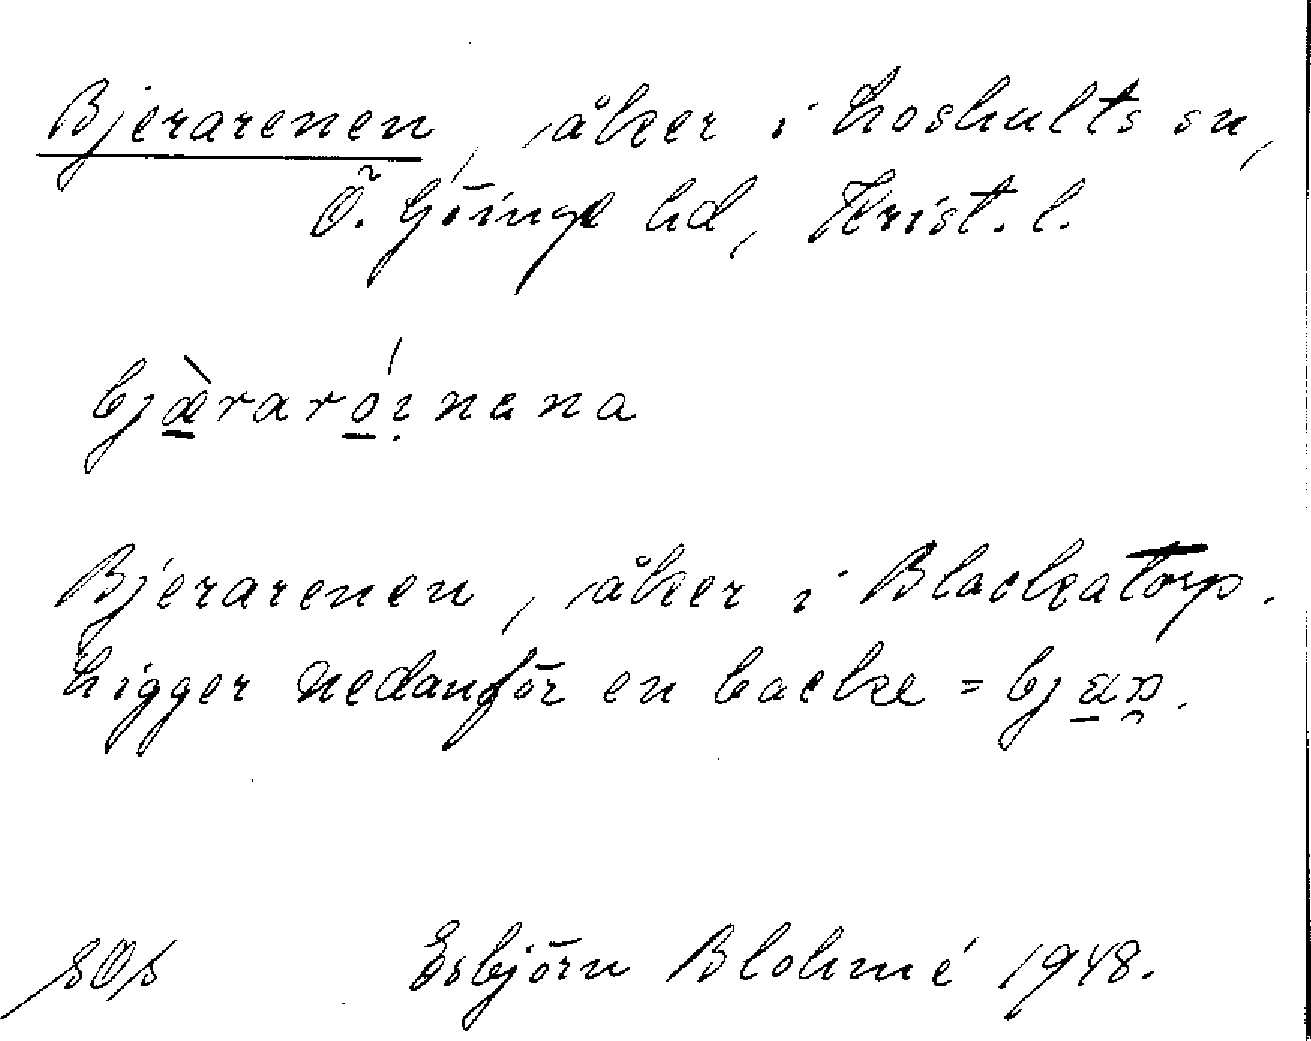 Bjerarenen, åker i Loshults sn,
Ö. Göinge hd, Krist. l.
bjæ̀raróinana
Bjerarenen, åker i Blackatorp.
Ligger nedanför en backe = bjær.
Esbjörn Blohmé 1948.